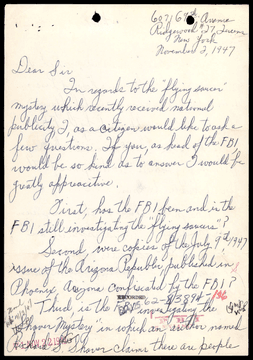 60-71 69th Avenue
Ridgewood 27 Queens
New York
November 3, 1947
Dear Sir
In regards to the "flying saucer"
mystery which recently received national
publicity I, as a citizen would like to ask a
few questions. If you, as head of the FBI
would be so kind as to answer I would be
greatly appreacitive.
First, has the FBI been and is the
FBI still investigating the "flying saucers"?
Second were copies of the July 9th 1947
issue of the Arizona Republic, published in
Phoenix Arizona confiscated by the FBI?
RECORDED
62-83894-136
Third is the FBI investigating the
Shaver Mystery in which an author named
Shaver claims there are people